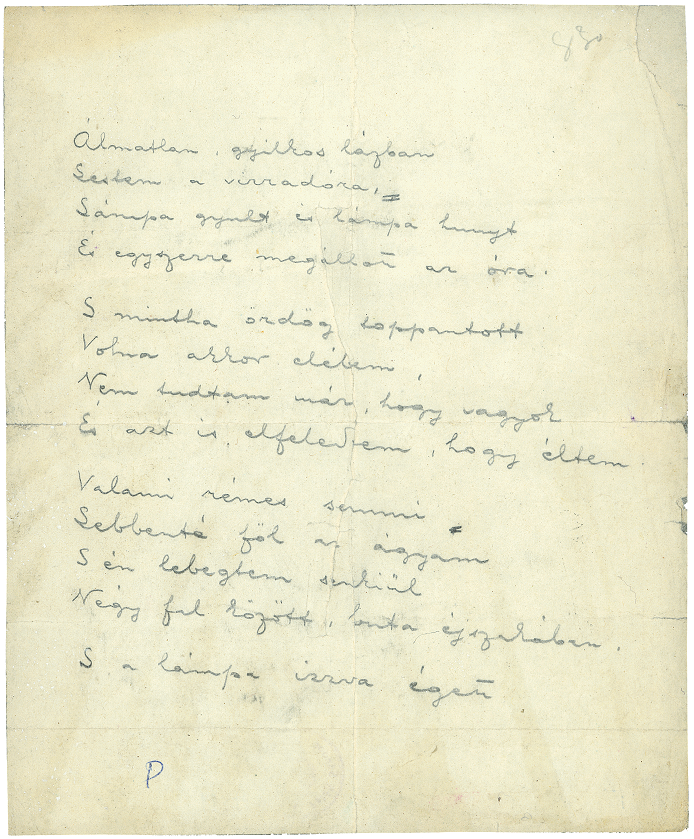 Álmatlan, gyilkos lázban
Lestem a virradóra,
Lámpa gyult és lámpa hunyt
És egyszerre megállott az óra.
S mintha ördög toppantott
Volna akkor elélem,
Nem tudtam már, hogy vagyok
És azt is elfeledtem, hogy éltem.
Valami rémes semmi
Lebbenté föl az ágyam
S én lebegtem senkiül
Négy fal között, buta éjszakában.
S a lámpa izzva égett
P